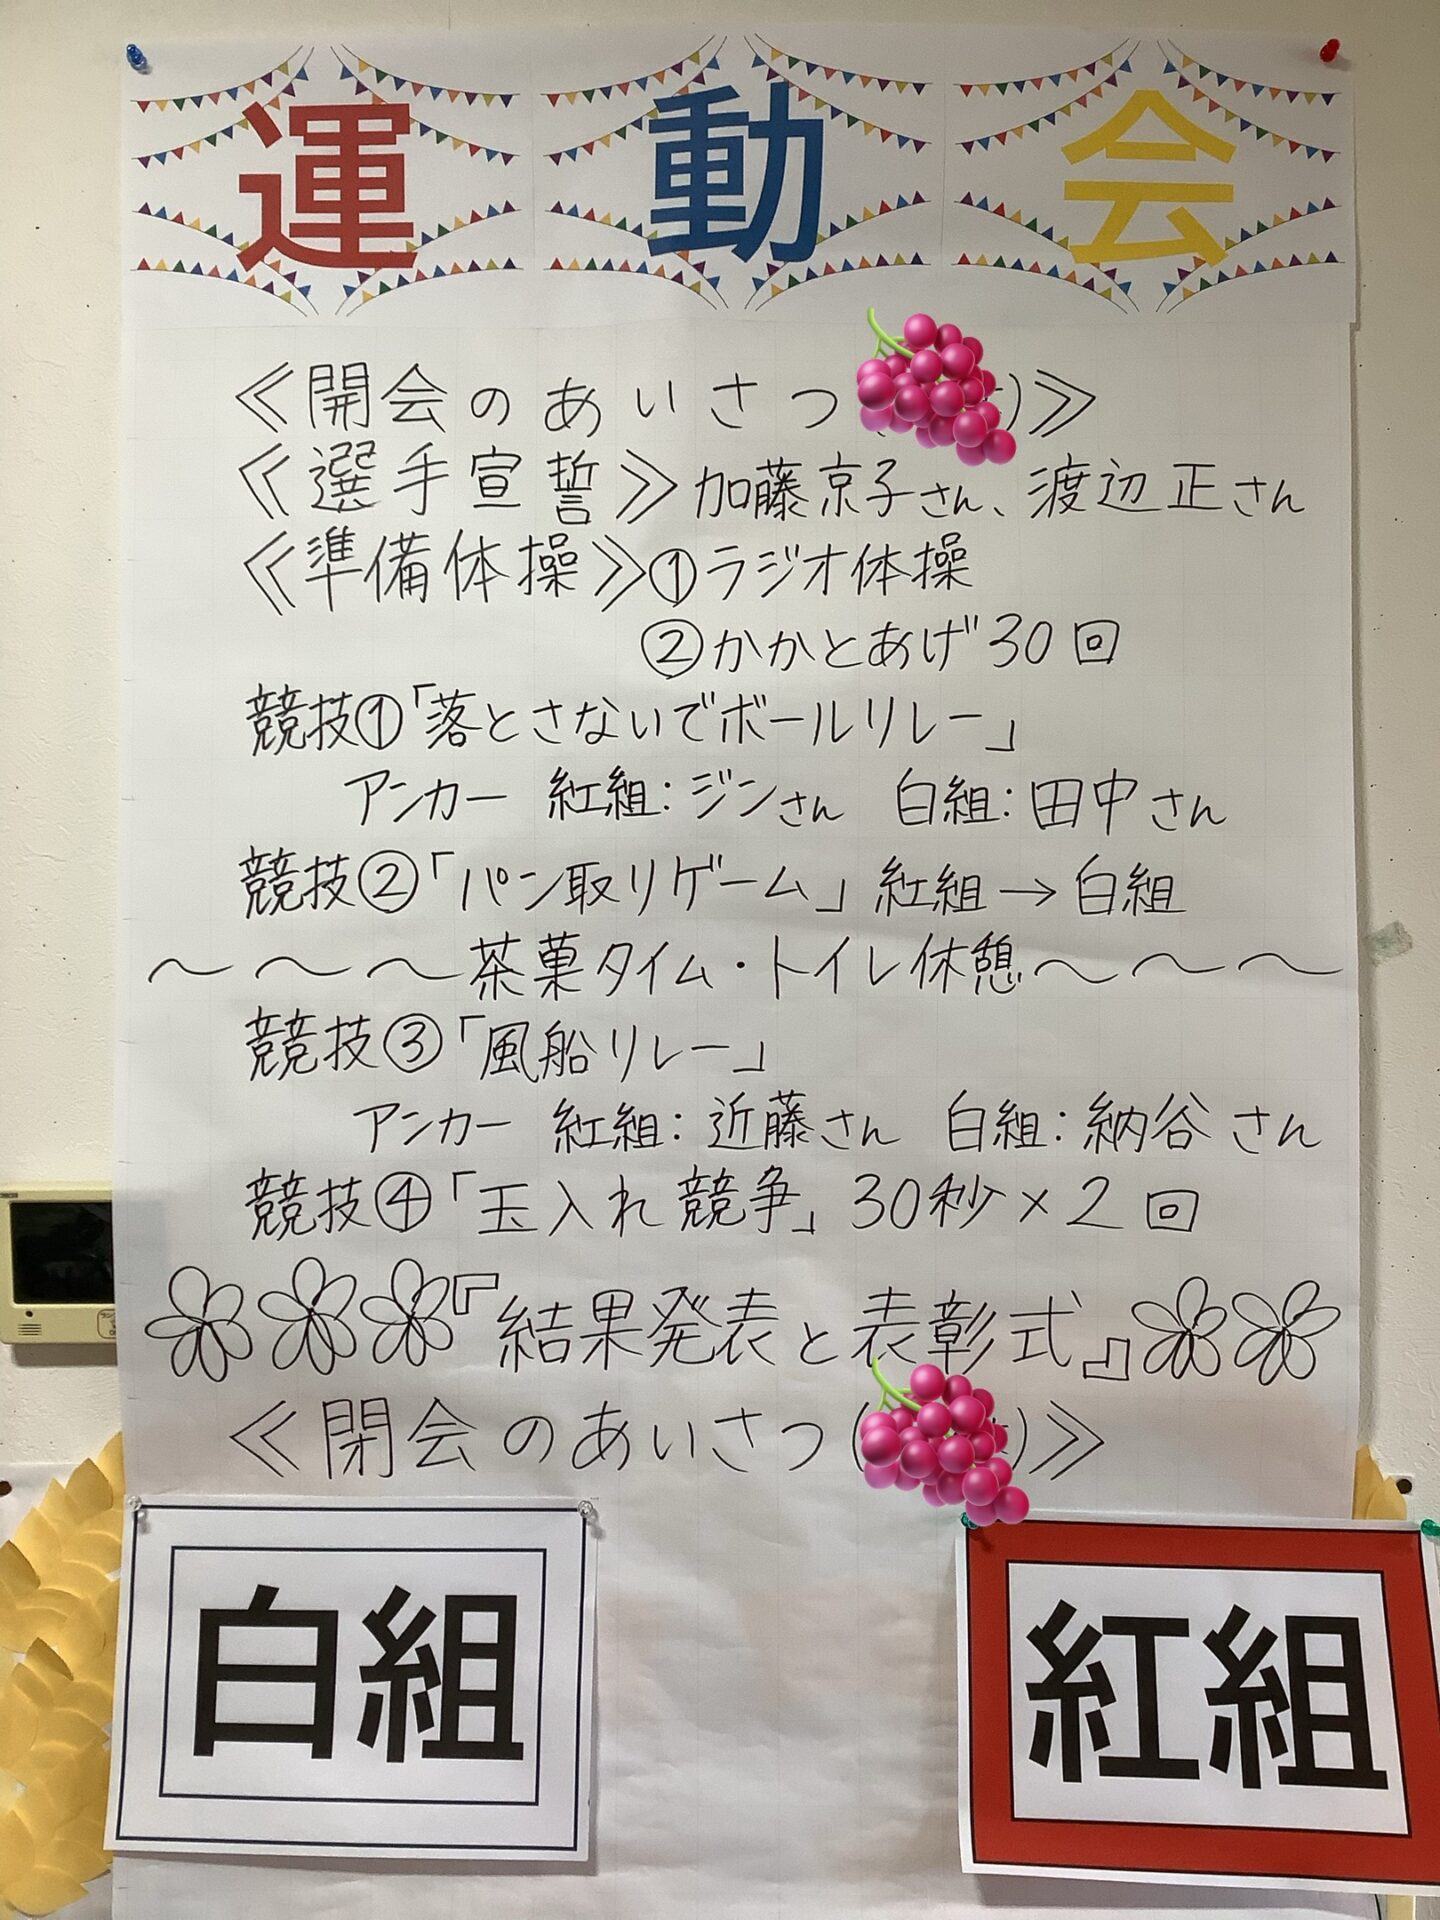 運動会
≪開会のあいさつ )≫
≪選手宣誓≫加藤京子さん、渡辺正さん
≪準備体操≫①ラジオ体操
②かかとあげ30回
競技①「落とさないでボールリレー」
アンカー 紅組:ジンさん 白組:田中さん
競技②「パン取りゲーム」紅組→白組
～～～茶菓タイム・トイレ休憩～～～
競技③「風船リレー」
アンカー 紅組:近藤さん 白組:納谷さん
競技④「玉入れ競争」30秒×2回
『結果発表と表彰式』
≪閉会のあいさつ( )≫
白組
紅組